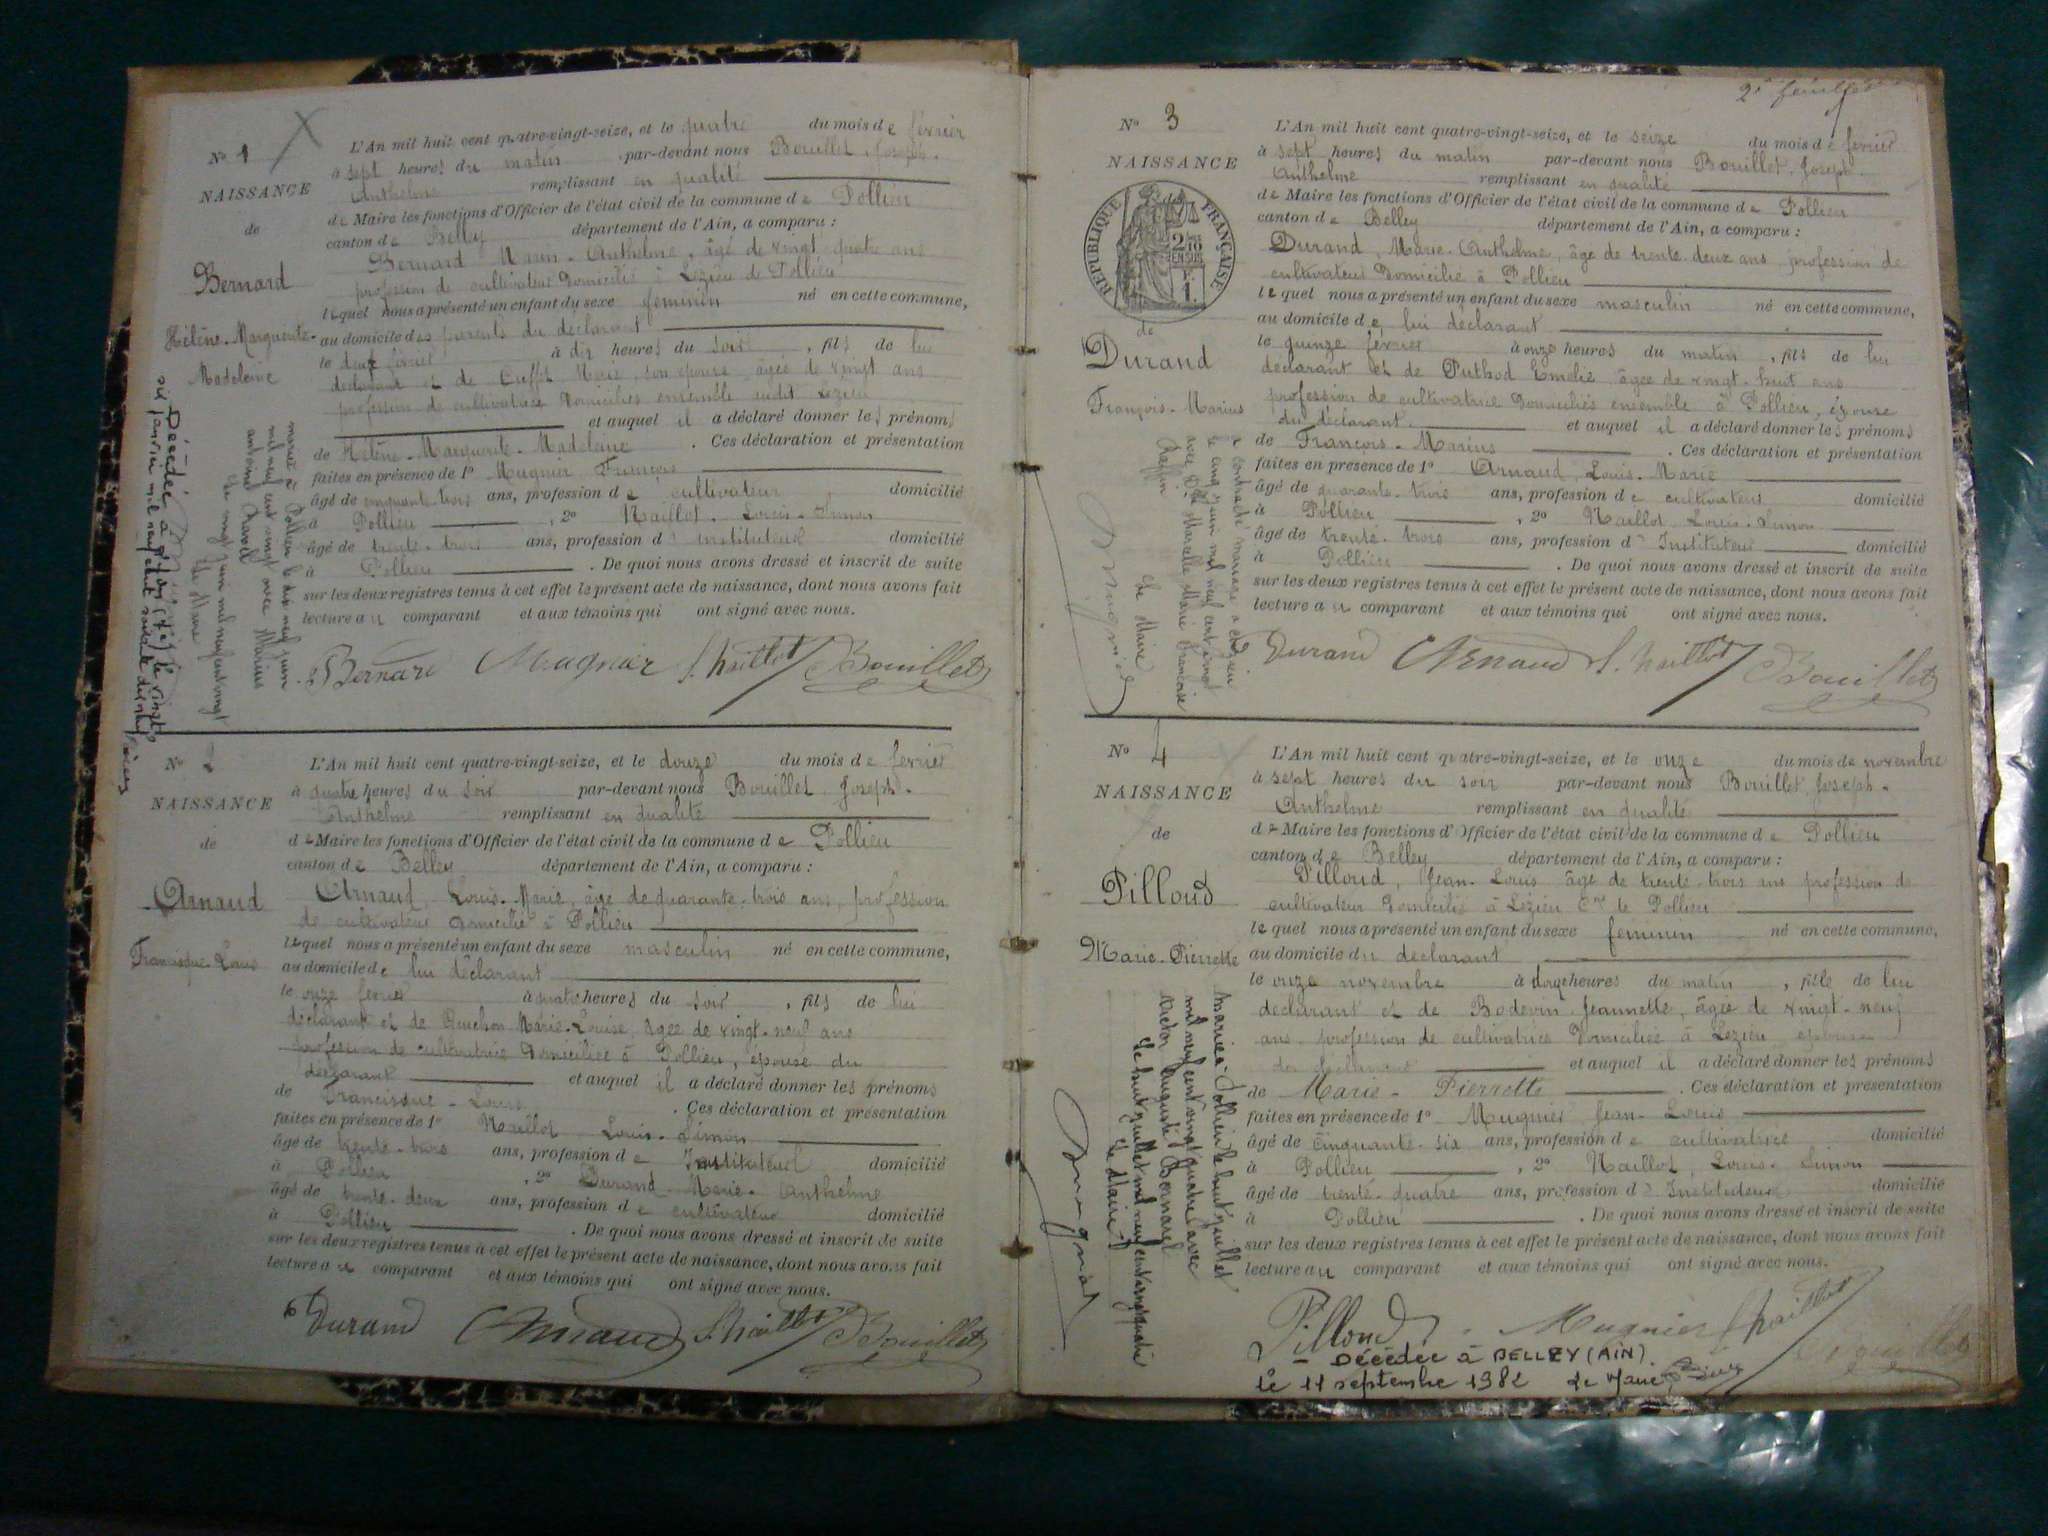 N° 1
NAISSANCE
de
Bernard
Hélène-Marguerite-
Madeleine
L'An mil huit cent quatre-vingt-seize, et le quatre du mois de février
à sept heures du matin par-devant nous Bouillet, Joseph-
Anthelme remplissant en qualité
de Maire les fonctions d'Officier de l'état civil de la commune de Pollieu
canton de Belley département de l'Ain, a comparu :
Bernard Marin-Anthelme, âgé de vingt quatre ans
profession de cultivateur domicilié à Lézieu de Pollieu
lequel nous a présenté un enfant du sexe féminin né en cette commune,
au domicile des parents du déclarant
le deux février à dix heures du soir, fils de lui
déclarant et de Marie, son épouse, âgée de vingt ans
profession de cultivatrice domiciliés ensemble audit Lézieu
et auquel il a déclaré donner les prénoms
de Hélène-Marguerite-Madeleine. Ces déclaration et présentation
faites en présence de 1° Mugnier François
âgé de cinquante-trois ans, profession de cultivateur domicilié
à Pollieu, 2° Naillot-Louis-Simon
âgé de trente-trois ans, profession d' instituteur domicilié
à Pollieu. De quoi nous avons dressé et inscrit de suite
sur les deux registres tenus à cet effet le présent acte de naissance, dont nous avons fait
lecture au comparant et aux témoins qui ont signé avec nous.
Bernard Mugnier Naillot Bouillet
mariée à Pollieu le dix neuf juin
mil neuf cent vingt avec Marius
antoine
Le vingt juin mil neuf cent vingt
Le Maire
Décédée à le vingt
janvier mil neuf cent soixante dix
N°
NAISSANCE
de
Arnaud
Francisque-Louis
L'An mil huit cent quatre-vingt-seize, et le douze du mois de février
à quatre heures du soir par-devant nous Bouillet Joseph-
Anthelme remplissant en qualité
de Maire les fonctions d'Officier de l'état civil de la commune de Pollieu
canton de Belley département de l'Ain, a comparu :
Arnaud, Louis-Marie, âgé de quarante-trois ans, profession
de cultivateur domicilié à Pollieu
lequel nous a présenté un enfant du sexe masculin né en cette commune,
au domicile de lui déclarant
le onze février à quatre heures du soir, fils de lui
déclarant et de Marie-Louise, âgée de vingt-neuf ans
profession de cultivatrice domiciliée à Pollieu, épouse du
déclarant et auquel il a déclaré donner les prénoms
de Francisque-Louis. Ces déclaration et présentation
faites en présence de 1° Naillot Louis-Simon
âgé de trente-trois ans, profession de Instituteur domicilié
à Pollieu, 2° Durand Marie-Anthelme
âgé de trente-deux ans, profession de cultivateur domicilié
à Pollieu. De quoi nous avons dressé et inscrit de suite
sur les deux registres tenus à cet effet le présent acte de naissance, dont nous avons fait
lecture au comparant et aux témoins qui ont signé avec nous.
Durand Arnaud Naillot Bouillet
2e feuillet
N° 3
NAISSANCE
REPUBLIQUE FRANÇAISE
2/10 EN SUS
1
de
Durand
François-Marius
L'An mil huit cent quatre-vingt-seize, et le seize du mois de février
à sept heures du matin par-devant nous Bouillet, Joseph-
Anthelme remplissant en qualité
de Maire les fonctions d'Officier de l'état civil de la commune de Pollieu
canton de Belley département de l'Ain, a comparu :
Durand, Marie-Anthelme, âgé de trente deux ans, profession de
cultivateur domicilié à Pollieu
lequel nous a présenté un enfant du sexe masculin né en cette commune,
au domicile de lui déclarant
le quinze février à onze heures du matin, fils de lui
déclarant et de Puthod Emelie, âgée de vingt-huit ans
profession de cultivatrice domiciliés ensemble à Pollieu, épouse
du déclarant et auquel il a déclaré donner les prénoms
de François-Marius. Ces déclaration et présentation
faites en présence de 1° Arnaud, Louis-Marie
âgé de quarante-trois ans, profession de cultivateur domicilié
à Pollieu, 2° Naillot, Louis-Simon
âgé de trente-trois ans, profession d' Instituteur domicilié
à Pollieu. De quoi nous avons dressé et inscrit de suite
sur les deux registres tenus à cet effet le présent acte de naissance, dont nous avons fait
lecture au comparant et aux témoins qui ont signé avec nous.
Durand Arnaud Naillot Bouillet
a contracté mariage à
le cinq juin mil neuf cent vingt
avec Dlle Marcelle Marie Françoise
Le Maire
N° 4
NAISSANCE
de
Pilloud
Marie-Pierrette
L'An mil huit cent quatre-vingt-seize, et le onze du mois de novembre
à sept heures du soir par-devant nous Bouillet Joseph-
Anthelme remplissant en qualité
de Maire les fonctions d'Officier de l'état civil de la commune de Pollieu
canton de Belley département de l'Ain, a comparu :
Pilloud, Jean-Louis âgé de trente-trois ans profession de
cultivateur domicilié à Lézieu Cne de Pollieu
lequel nous a présenté un enfant du sexe féminin né en cette commune,
au domicile du déclarant
le onze novembre à heures du matin, fille de lui
déclarant et de Bodevin Jeannette, âgée de vingt-neuf
ans profession de cultivatrice domiciliée à Lézieu épouse
du déclarant et auquel il a déclaré donner les prénoms
de Marie-Pierrette. Ces déclaration et présentation
faites en présence de 1° Mugnier Jean-Louis
âgé de cinquante-six ans, profession de cultivatrice domicilié
à Pollieu, 2° Naillot, Louis-Simon
âgé de trente-quatre ans, profession d' Instituteur domicilié
à Pollieu. De quoi nous avons dressé et inscrit de suite
sur les deux registres tenus à cet effet le présent acte de naissance, dont nous avons fait
lecture au comparant et aux témoins qui ont signé avec nous.
Pilloud Mugnier Naillot Bouillet
mariée à Pollieu le huit juillet
mil neuf cent vingt quatre avec
Victor Auguste Bernard
Le huit juillet mil neuf cent vingt quatre
Le Maire
- DÉCÉDÉE à BELLEY (AIN).
le 11 septembre 1982 Le Maire